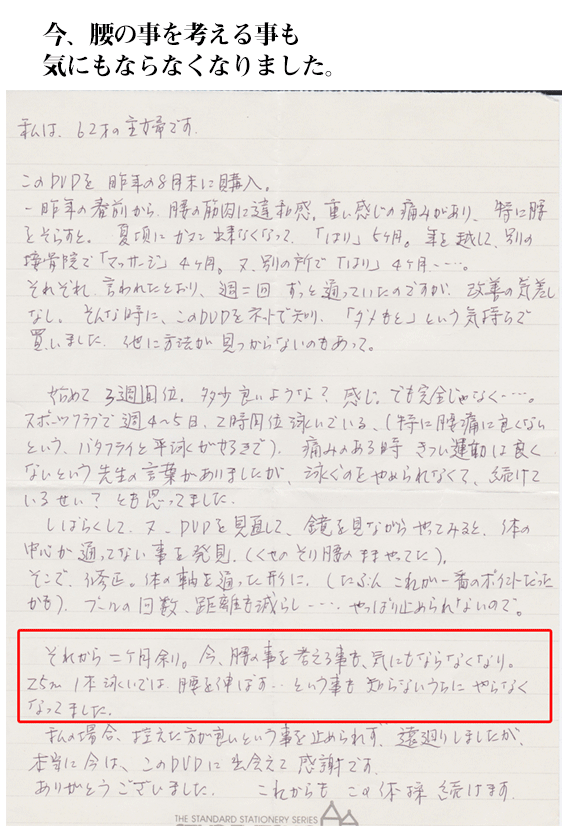 今、腰の事を考える事も
気にもならなくなりました。
私は、62才の主婦です.
このDVDを 昨年の8月末に購入。
一昨年の春前から、腰の筋肉に違和感。重い感じの痛みがあり、特に腰
をそらすと。夏頃に 出来なくなって、「はり」5ヶ月。年を越して、別の
接骨院で「マッサージ」4ヶ月。又、別の所で「はり」4ヶ月‥‥。
それぞれ、言われたとおり、週二回 ずっと通っていたのですが、改善の気差し
なし。そんな時に、このDVDをネットで知り、「ダメもと」という気持ちで
買いました。他に方法が見つからないのもあって。
始めて 3週間位。多少良いような? 感じ。でも完全じゃなく‥‥。
スポーツクラブで週4〜5日、2時間位泳いでいる、(特に腰痛に良くない
という、バタフライと平泳が好きで)。痛みのある時 きつい運動は良く
ないという先生の言葉がありましたが、泳ぐのをやめられなくて、続けて
いるせい? とも思ってました.
しばらくして、又、DVDを見直して、鏡を見ながらやってみると、体の
中心が通ってない事を発見.(くせのそり腰のままやってた)。
そこで、修正。体の軸を通った形に.(たぶん これが一番のポイントだった
かも)。プールの回数、距離も減らし‥‥やっぱり止められないので。
それから二ヶ月余り。今、腰の事を考える事も、気にもならなくなり。
25m 1本泳いでは、腰を伸ばす‥という事も 知らないうちに やらなく
なってました.
私の場合、控えた方が良いという事を止められず、遠廻りしましたが、
本当に今は、このDVDに出会えて 感謝です.
ありがとうございました. これからも この体操 続けます.
THE STANDARD STATIONERY SERIES